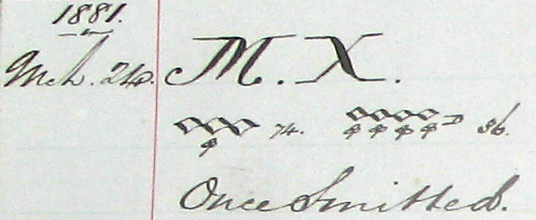 1881.
Mch. 24. M. X.
74. 86.
Once Smitted.